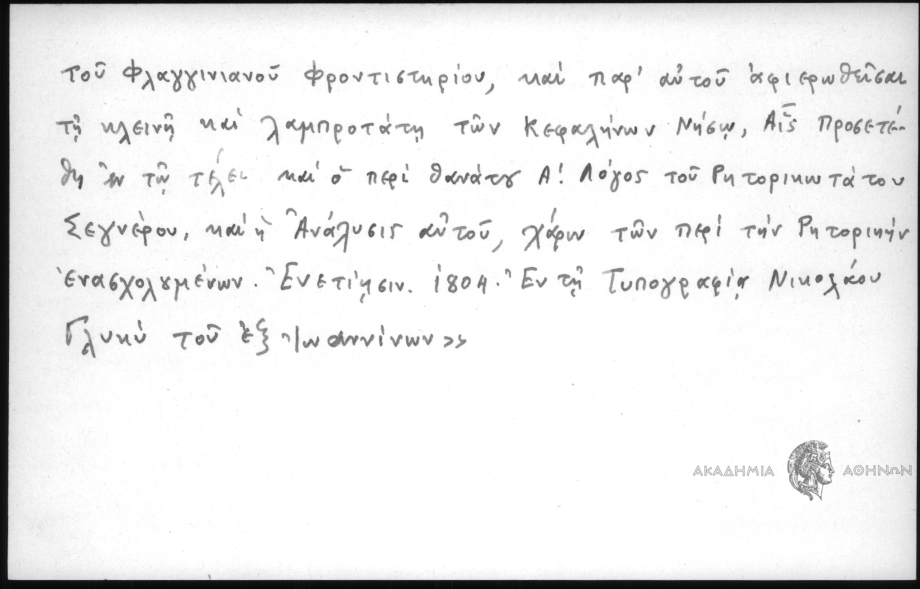 τοῦ Φλαγγινιανοῦ Φροντιστηρίου, καὶ παρ' αὐτοῦ ἀφιερωθεῖσαι
τῇ κλεινῇ καὶ λαμπροτάτῃ τῶν Κεφαλήνων Νήσῳ, Αἷς προσετέ-
θη ἐν τῷ τέλει καὶ ὁ περὶ θανάτου Α! Λόγος τοῦ Ρητορικωτάτου
Σεγνέρου, καὶ ἡ Ἀνάλυσις αὐτοῦ, χάριν τῶν περὶ τὴν Ρητορικὴν
ἐνασχολουμένων. Ἐνετίῃσιν. 1804. Ἐν τῇ Τυπογραφίᾳ Νικολάου
Γλυκὺ τοῦ ἐξ Ἰωαννίνων >>
ΑΚΑΔΗΜΙΑ ΑΘΗΝΩΝ